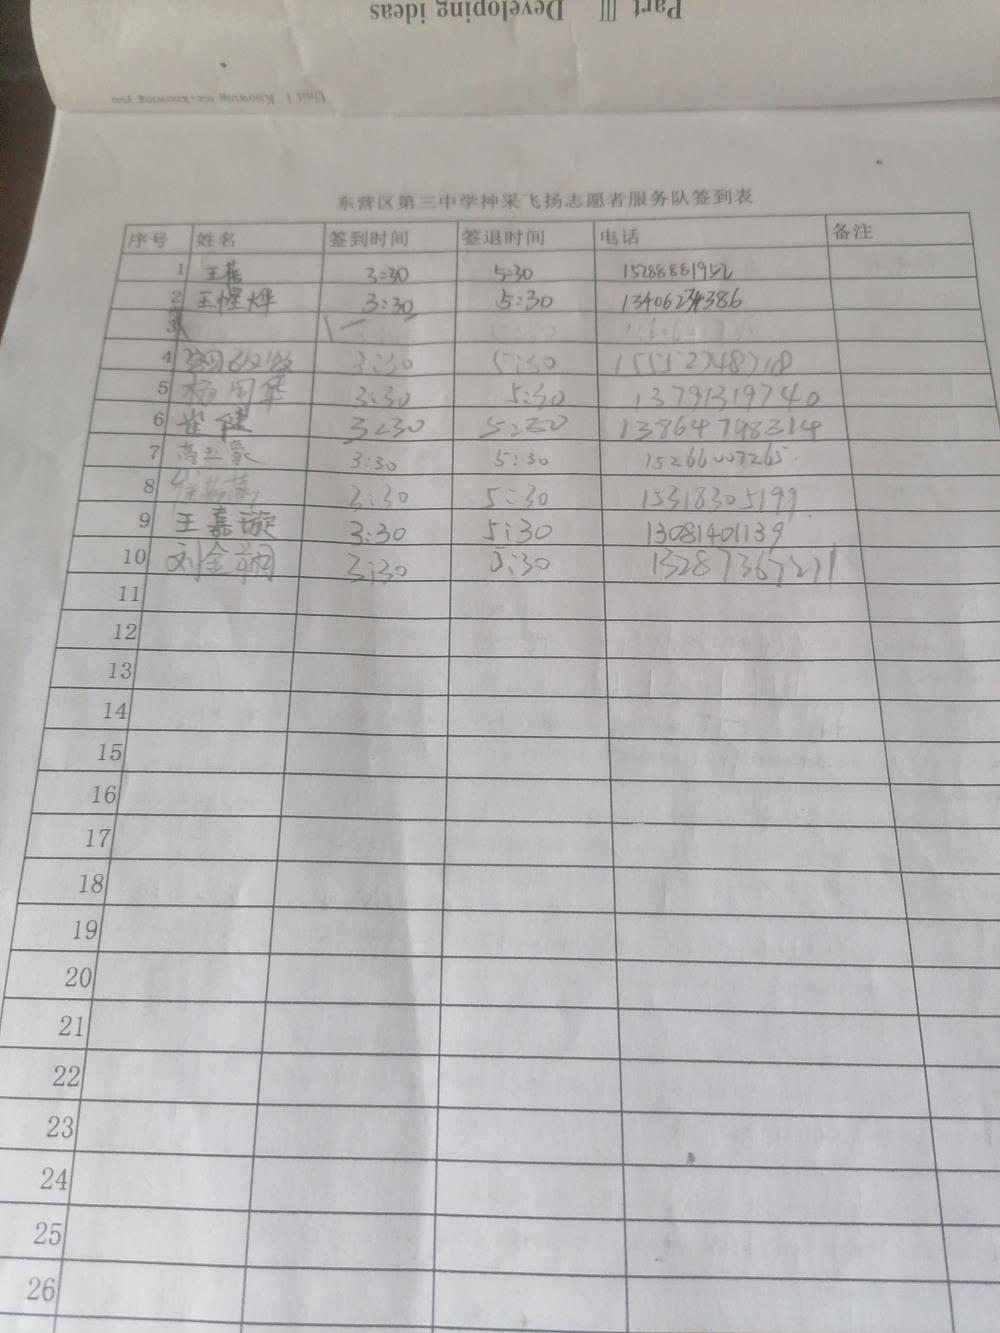 Part Ⅲ Developing ideas
Unit 1 Knowing me, knowing you
东营区第三中学神采飞扬志愿者服务队签到表
序号 姓名 签到时间 签退时间 电话 备注
1 王 3:30 5:30 15288881952
2 王惺烨 3:30 5:30 13406274386
3
4 3:30 5:30
5 杨国华 3:30 5:30 13791319740
6 崔健 3:30 5:30 13864798314
7 高玉豪 3:30 5:30 15266007265
8 3:30 5:30 15318305199
9 王嘉璇 3:30 5:30 13081401139
10 刘金 3:30 5:30 13287367211
11
12
13
14
15
16
17
18
19
20
21
22
23
24
25
26